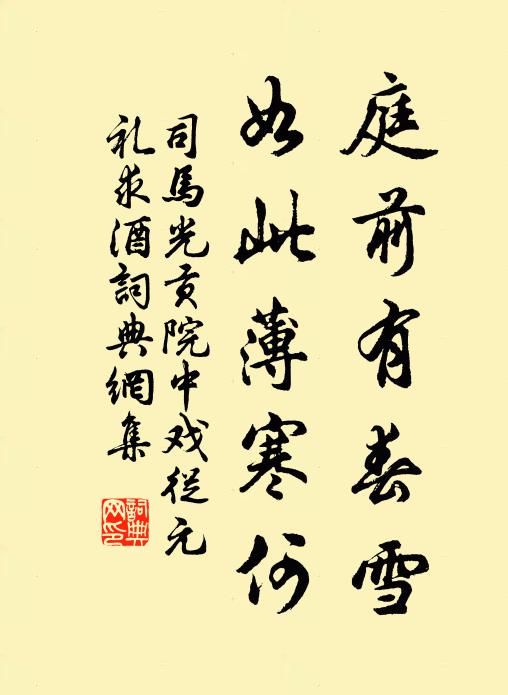 庭前有春雪
如此薄寒何
司馬光贡院中戏從元
礼求酒詞典網集
詞典
网印